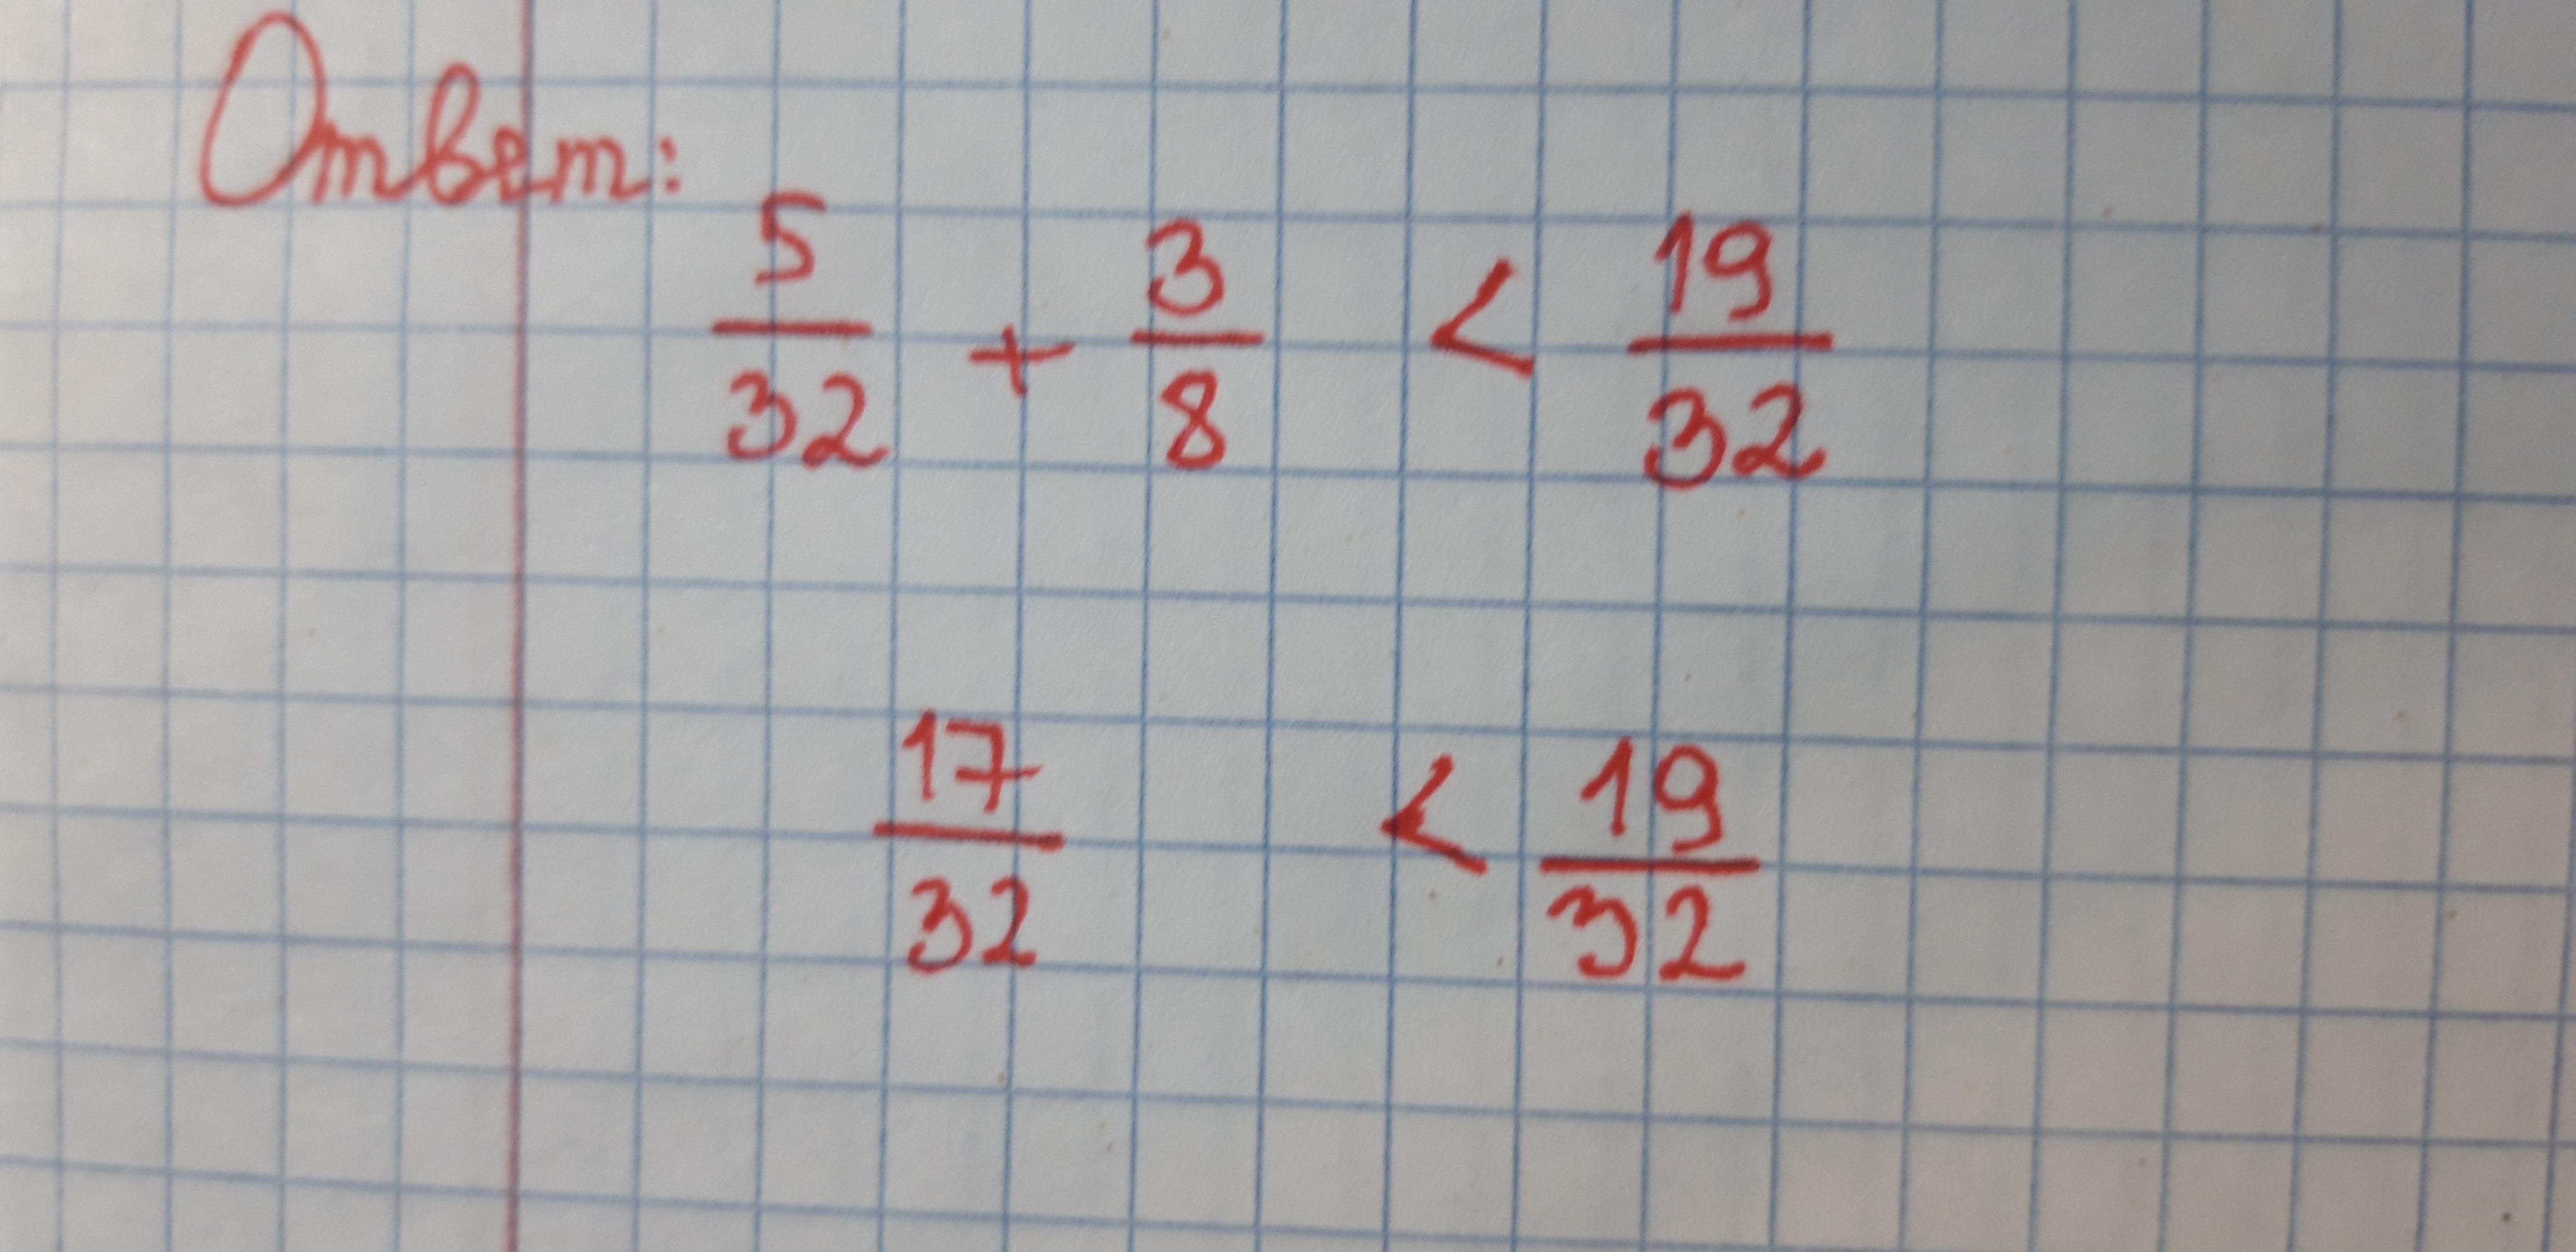 Ответ:
5/32 + 3/8 < 19/32
17/32 < 19/32